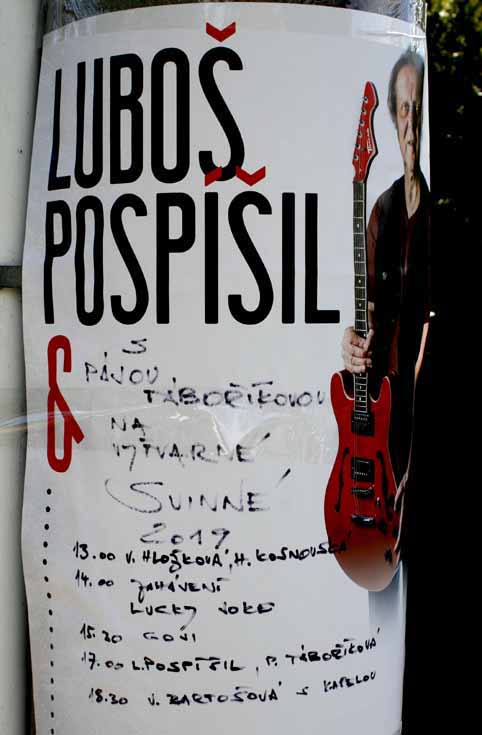 LUBOŠ
POSPÍŠIL
&
S
PÁJOU
TÁBOŘÍKOVOU
NA
VÝTVARNÉ
SVINNÉ
2019
13.00 V. HLOŽKOVÁ, H. KOSNOVSKÁ
14.00 ZAHÁJENÍ
LUCKY JOKE
15.30 GOŠI
17.00 L. POSPÍŠIL, P. TÁBOŘÍKOVÁ
18.30 V. BARTOŠOVÁ S KAPELOU